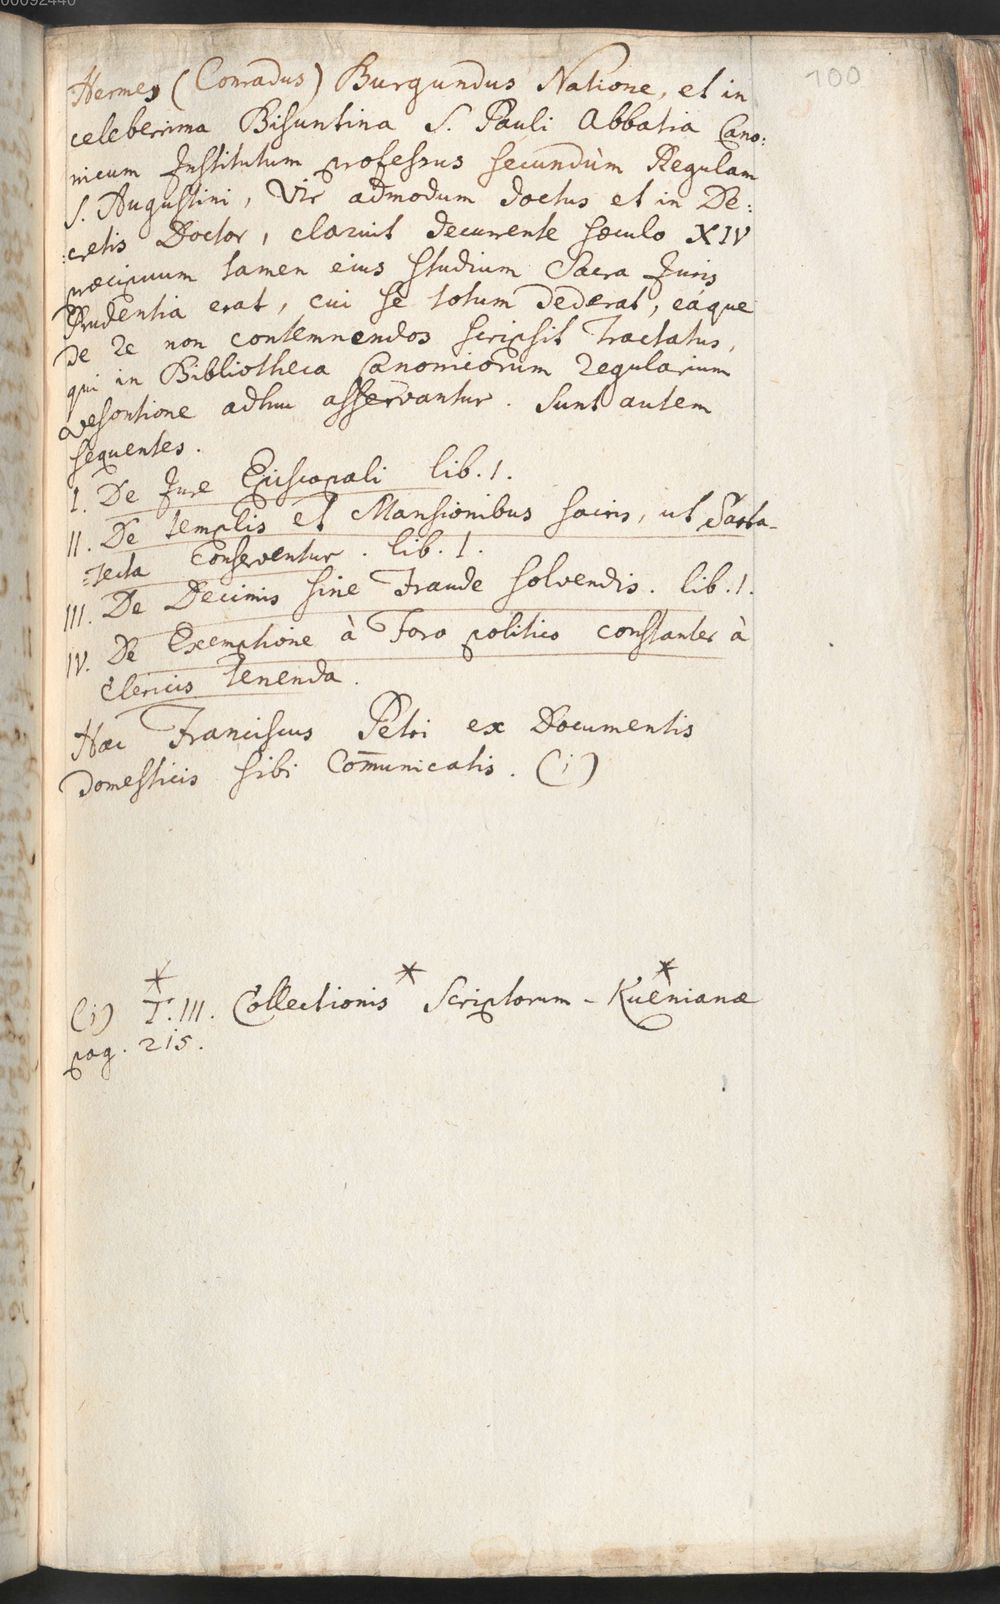 00092440
100
Hermes (Conradus) Burgundus Natione, et in
celeberrima Bisuntina S. Pauli Abbatia Cano:
nicum Institutum professus secundùm Regulam
S. Augustini, Vir admodum doctus et in De:
:cretis Doctor, claruit decurrente sæculo XIV
præcipuum tamen eius studium Sacra Juris
Prudentia erat, cui se totum dederat, eaque
de re non contemnendos scripsit Tractatus,
qui in Bibliotheca Canonicorum Regularium
Vesontione adhuc asservantur. Sunt autem
sequentes.
I. De Jure Episcopali lib. 1.
II. De templis et Mansionibus sacris, ut Sarta-
=tecta conserventur. lib. 1.
III. De Decimis sine Fraude solvendis. lib. 1.
IV. De Exemptione à Foro politico constanter à
Clericis tenenda.
Hæc Franciscus Petri ex Documentis
domesticis sibi Com̄unicatis. (i)
* * *
(i) T. III. Collectionis Scriptorum - Kuenianæ
pag. 215.